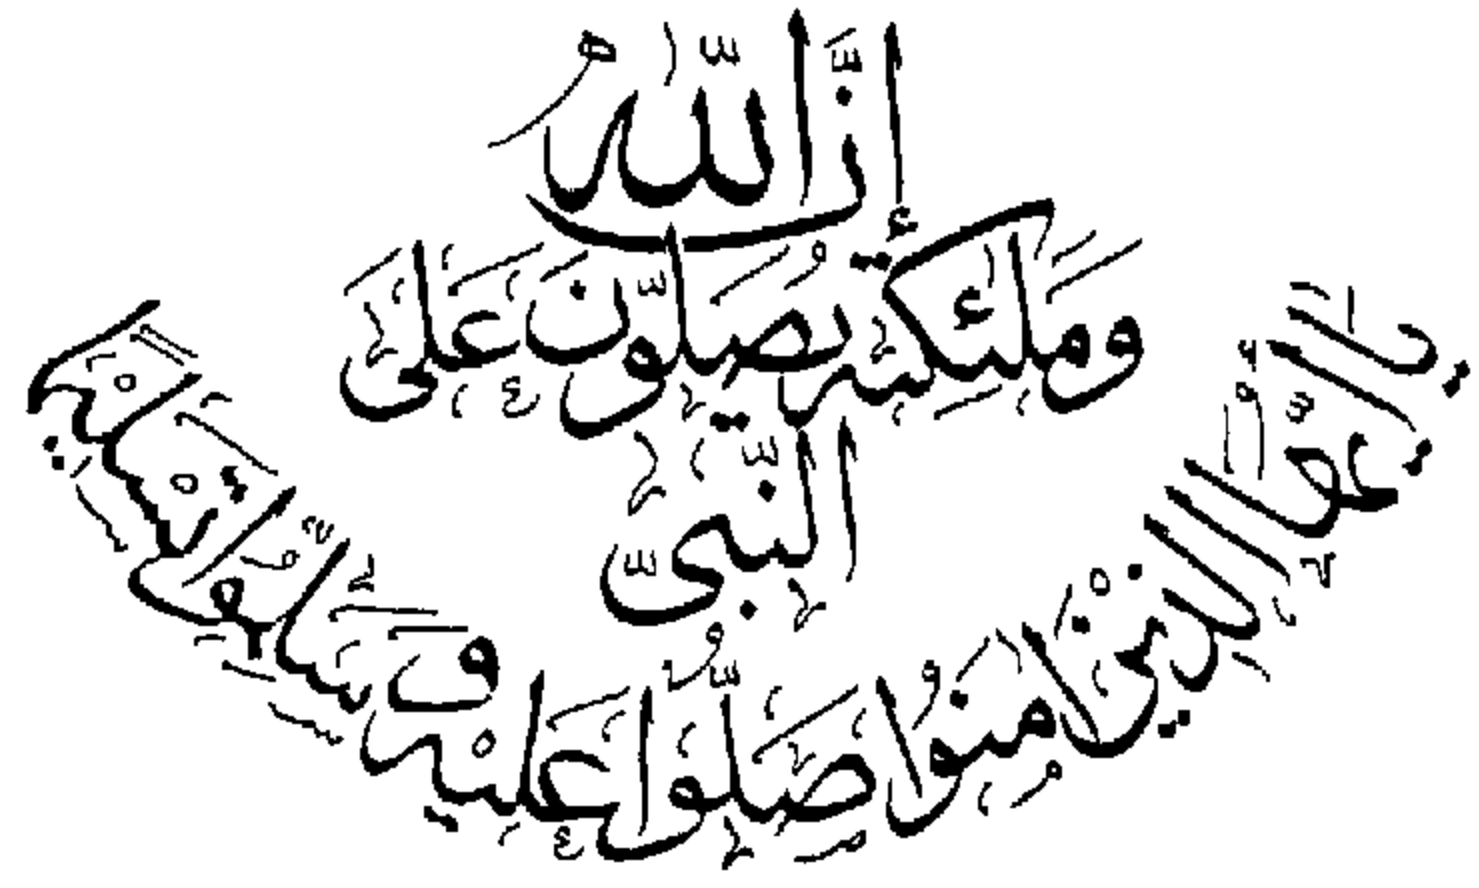 إِنَّ اللّٰهَ
وَمَلٰئِكَتَهُ يُصَلُّونَ عَلَى
النَّبِيِّ
يٰٓاَيُّهَا الَّذِيْنَ اٰمَنُوْا صَلُّوْا عَلَيْهِ وَسَلِّمُوْا تَسْلِيْمًا